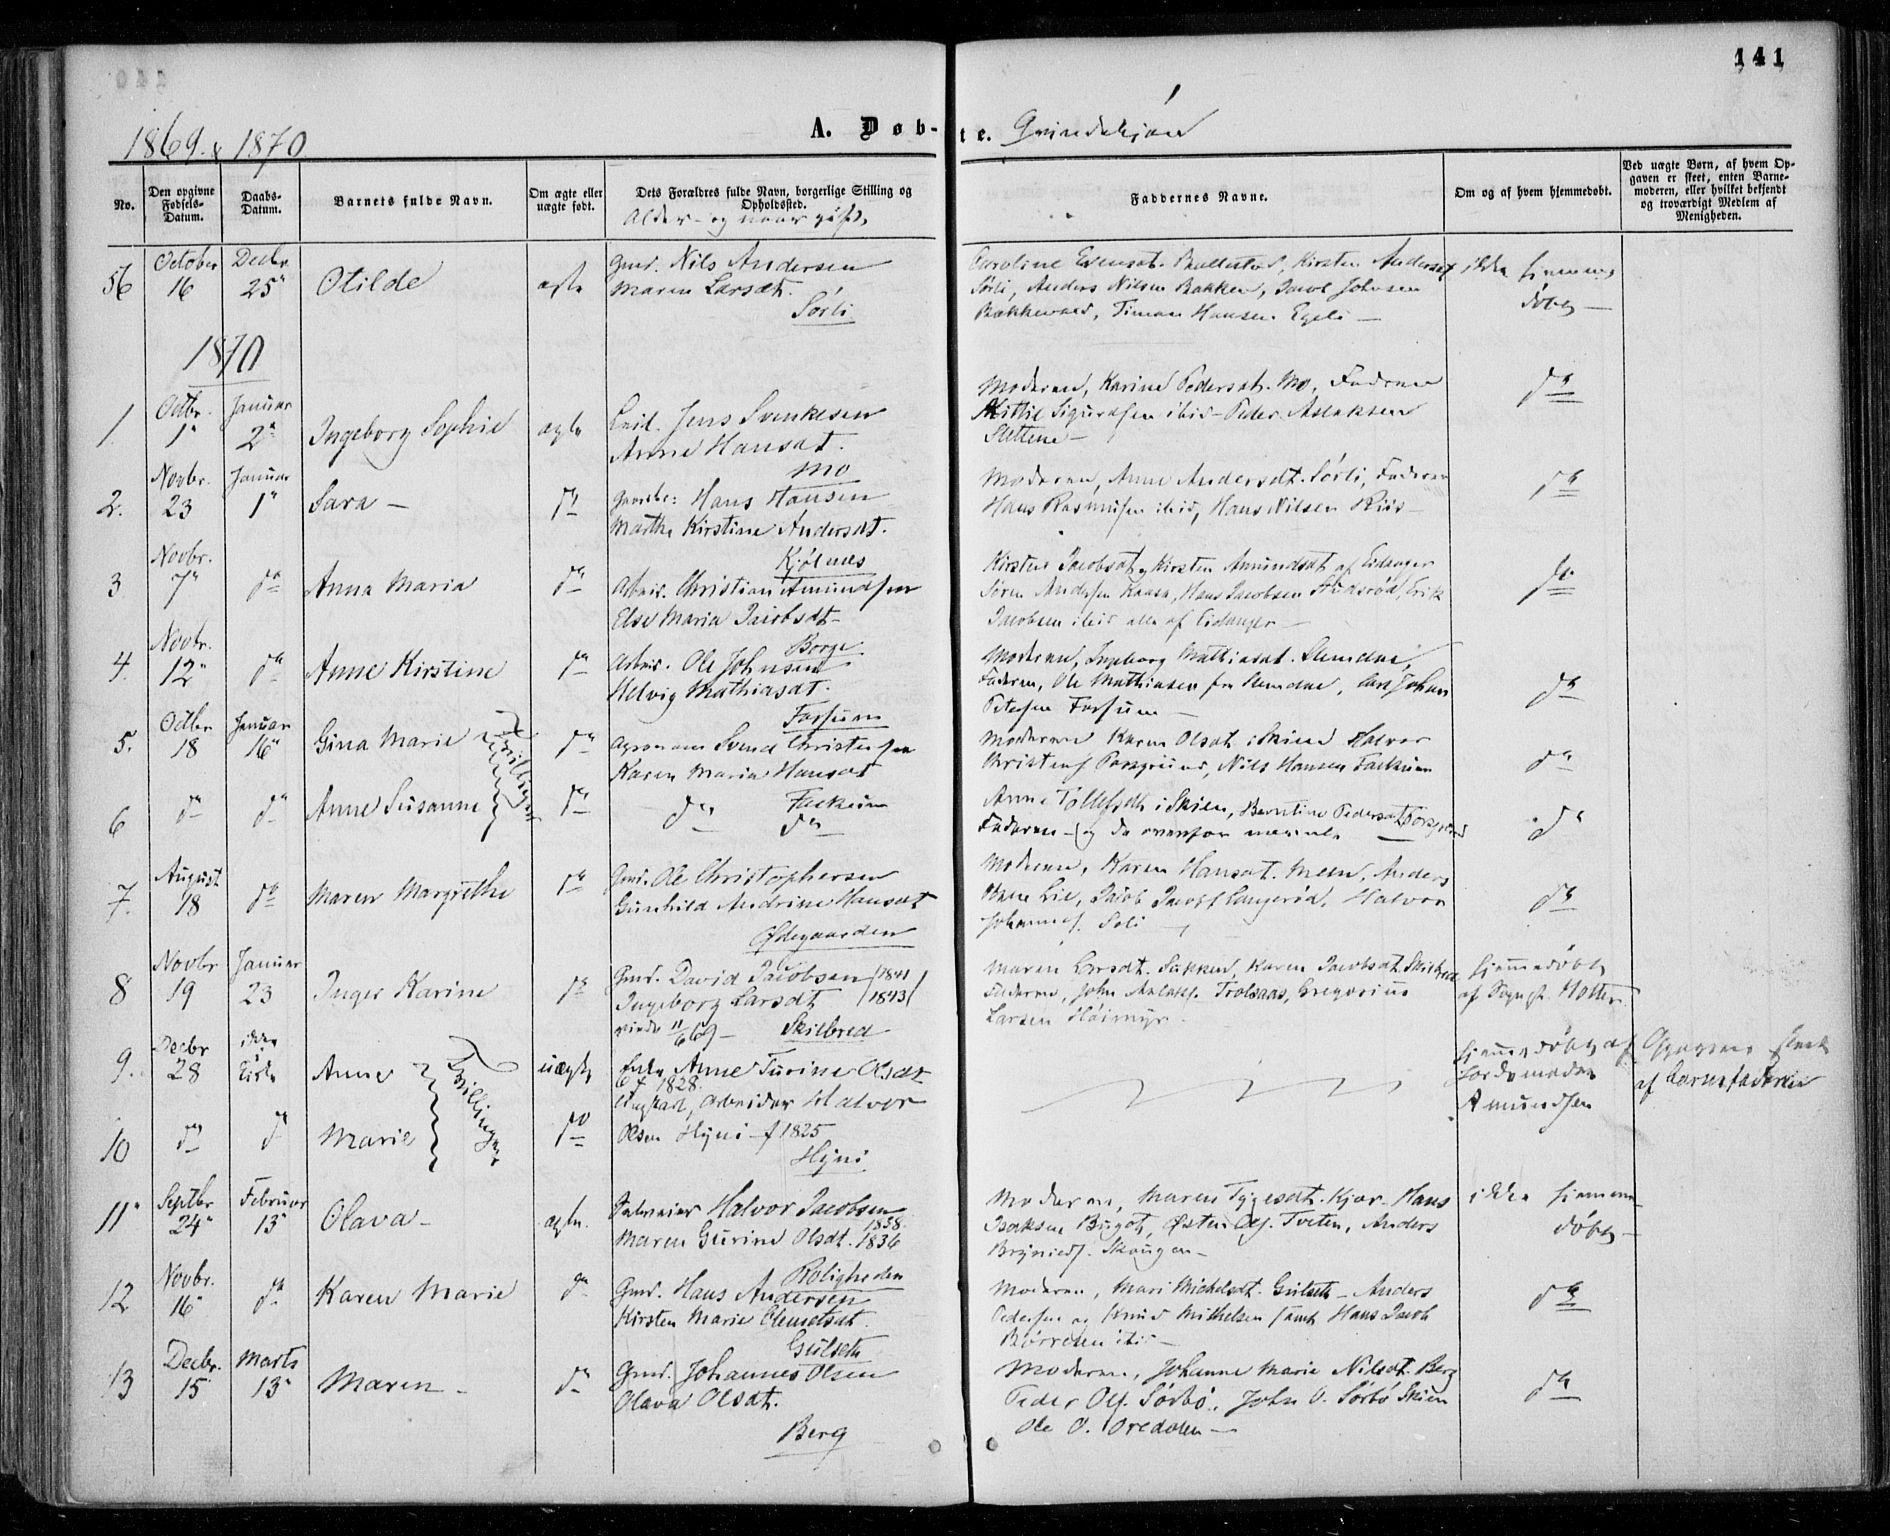 141
1869 & 1870
A. Døb-te. Qvindekjøn
No.
Den opgivne Fødsels-Datum.
Daabs-Datum.
Barnets fulde Navn.
Om ægte eller uægte født.
Dets Forældres fulde Navn, borgerlige Stilling og Opholdssted.
Alder og naar gift.
Faddernes Navne.
Om og af hvem hjemmedøbt.
Ved uægte Børn, af hvem Opgaven er skeet, enten Barnemoderen, eller hvilket bekjendt og troværdigt Medlem af Menigheden.
56 October 16 Decbr. 25" Otilde ægte
Gmd. Nils Andersen
Maren Larsdt.
Sørli
Caroline Evensdt. Kirsten Andersdt
Sørli, Anders Nilsen Bakken, Jacob Johnsen
Hansen Egeli —
ikke hjemmedøbt —
1870
1. Octbr. 1" Januar 2" Ingeborg Sophie ægte
Jens Svenkesen
Anne Hansdt.
Mo
Moderen, Karine Pedersdt. Mo, Faderen
Kittil Sigurdsen ibid — Peder Aslaksen
Slettene —
do
2. Novbr. 23 Januar 1" Sara — do
Hans Hansen
Marthe Kirstine Andersdt.
Kjølnes
Moderen, Anne Andersdt. Sørli, Faderen
Hans Rasmussen ibid, Hans Nilsen Riis —
do
3 Novbr. 7" do Anna Maria do
Arbeid. Christian Amundsen
Else Maria Jacobsdt —
Borge
Kirsten Jacobsdt, Kirsten Amundsdt af Eidanger
Søren Andersen Kaasa, Hans Jacobsen Erik
Jacobsen ibid alle af Eidanger —
do
4. Novbr. 12" do Anne Kirstine do
Arbeid. Ole Johnsen
Helvig Mathiasdt.
Fossum
Moderen, Ingeborg Mathiasdt.
Faderen, Ole Mathiasen fra Johan
Petersen Fossum —
do
5. Octbr 18 Januar 16" Gina Marie do
Tvillinger
Agronom Svend Christensen
Karen Maria Hansdt
Falkum
Moderen Karen Olsdt. i Skien Halvor
Christens. Porsgrund, Nils Hansen Falkum
do
6 do do Anne Susanne do
do do
Anne Tollefsdt i Skien, Berntine Pedersdt Porsgrund
Faderen — og de ovenfor
do
7. August 18 do Maren Margrethe do
Gmd. Ole Christophersen
Gunhild Andrine Hansdt
Ødegaarden
Moderen, Karen Hansdt. Meen, Anders
Lie, Jacob Jacobs. Langerød, Halvor
Johannes. Soli —
do
8 Novbr 19 Januar 23 Inger Karine do
Gmd. David Jacobsen (1841)
Ingeborg Larsdt (1843)
11/6 69 — Skilbred
Maren Larsdt. Karen Jacobsdt. Skilbred
Faderen, John Aslaks. Trolsaas, Gregorius
Larsen Høimyr.
hjemmedøbt
af Sognepr. Hotter
9. Decbr 28 ikke i Kirke Anne uægte
Tvillinger
Enke Anne Turine Olsdt
f 1828.
arbeider Halvor
hjemmedøbt af
Jordemoder
Amundsen
Opgaven skeet
af barnefaderen
10 do do Marie do
Olsen Hyni — f 1825
Hyni
11" Septbr 24" Februar 13" Olava — ægte.
Halvor Jacobsen 1838
Maren Gurine Olsdt. 1836
Roligheden
Moderen, Maren Tygesdt. Kjær. Hans
Isaksen Østen Ols. Tveten, Anders
Brynilds. Skougen —
ikke hjemmedøbt —
12 Novbr. 16" do Karen Marie do
Gmd. Hans Andersen
Kirsten Marie Clemetsdt.
Gulseth
Moderen, Mari Michelsdt. Gulseth — Anders
Pedersen og Knud Mikkelsen samt Hans Jacob
Børresen ibid —
do
13 Decbr. 15 Marts 13" Maren — do
Gmd. Johannes Olsen
Olava Olsdt.
Berg
Moderen, Johanne Marie Nilsdt. Berg
Peder Ols. Sørbø, John O. Sørbø Skien
Ole O. Bredalen —
do